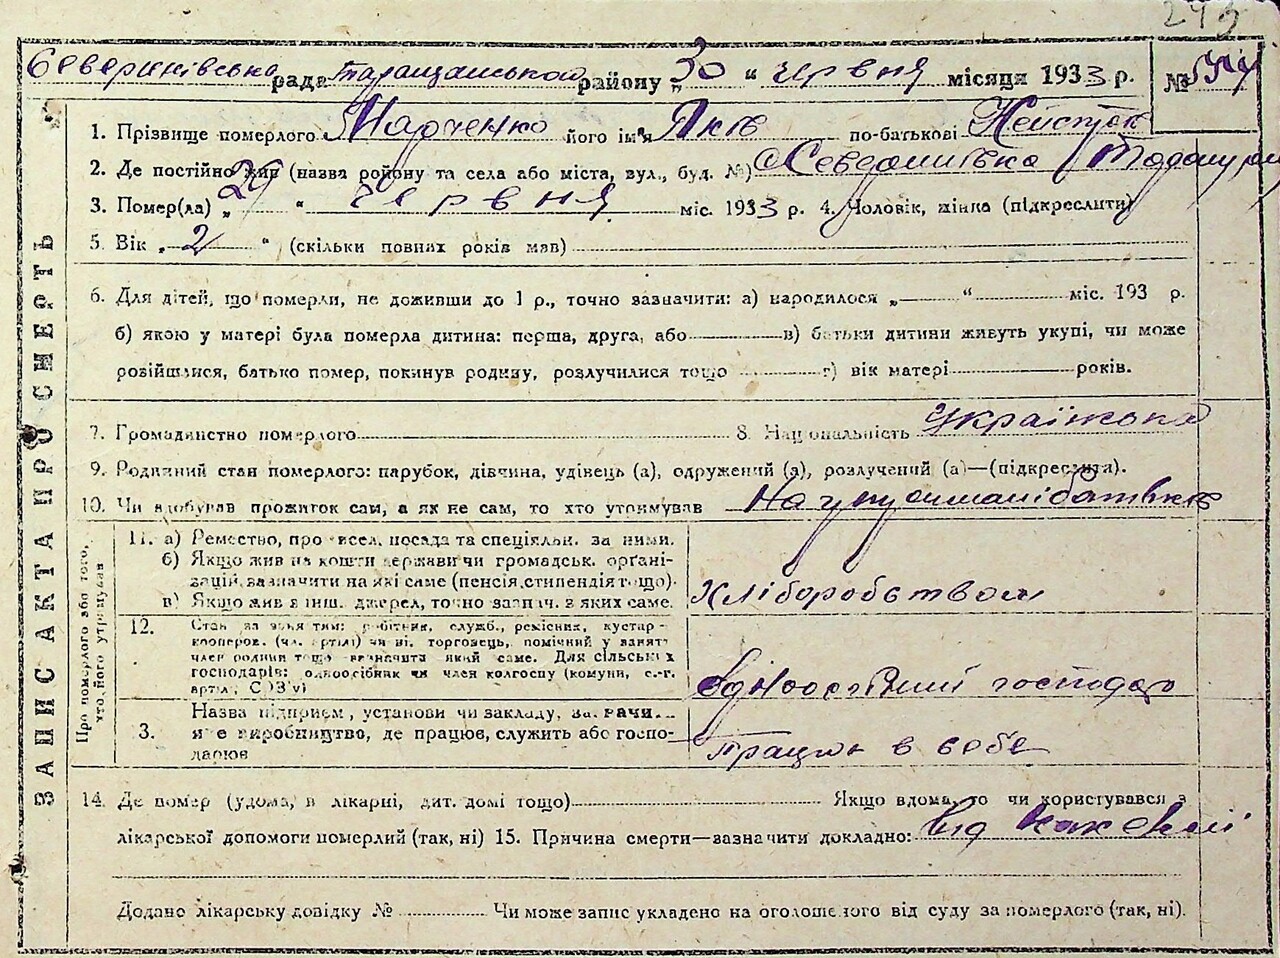 249
Северинівська рада Таращанської району „30“ червня місяця 1933 р. №
ЗАПИС АКТА ПРО СМЕРТЬ
1. Прізвище померлого Марченко його ім'я Яків по-батькові
2. Де постійно жив (назва району та села або міста, вул., буд. №) с Северинівка
3. Помер(ла) „26“ червня міс. 1933 р. 4. Чоловік, жінка (підкреслити)
5. Вік „2“ (скільки повних років мав)
6. Для дітей, що померли, не доживши до 1 р., точно зазначити: а) народилося „ “ міс. 193 р.
б) якою у матері була померла дитина: перша, друга, або в) батьки дитини живуть укупі, чи може
розійшлися, батько помер, покинув родину, розлучилися тощо г) вік матері років.
7. Громадянство померлого 8. Національність Українська
9. Родинний стан померлого: парубок, дівчина, удівець (а), одружений (а), розлучений (а)—(підкреслити).
10. Чи здобував прожиток сам, а як не сам, то хто утримував На утриманні батьків
Про померлого або того, хто його утримував
11. а) Ремество, професія, посада та спеціяльн. за ними.
б) Якщо жив на кошти держави чи громадськ. орґані-
зацій, зазначити на які саме (пенсія, стипендія тощо).
в) Якщо жив з інш. джерел, точно зазнач. з яких саме.
Хліборобством
12. Стан за заняттям: робітник, служб., ремісник, кустар-
кооперов. (чл. артілі) чи ні, торговець, помічний у занятті
член родини тощо зазначити який саме. Для сільських
господарів: одноосібник чи член колгоспу (комуни, с.-г.
артілі, СОЗ'у)
Одноосібний господар
3. Назва підприєм., установи чи закладу, зазначи...
яке виробництво, де працює, служить або госпо-
дарює
працює в себе
14. Де помер (удома, в лікарні, дит. домі тощо) Якщо вдома, то чи користувався з
лікарської допомоги померлий (так, ні) 15. Причина смерти—зазначити докладно: від
Додано лікарську довідку № Чи може запис укладено на оголошеного від суду за померлого (так, ні).